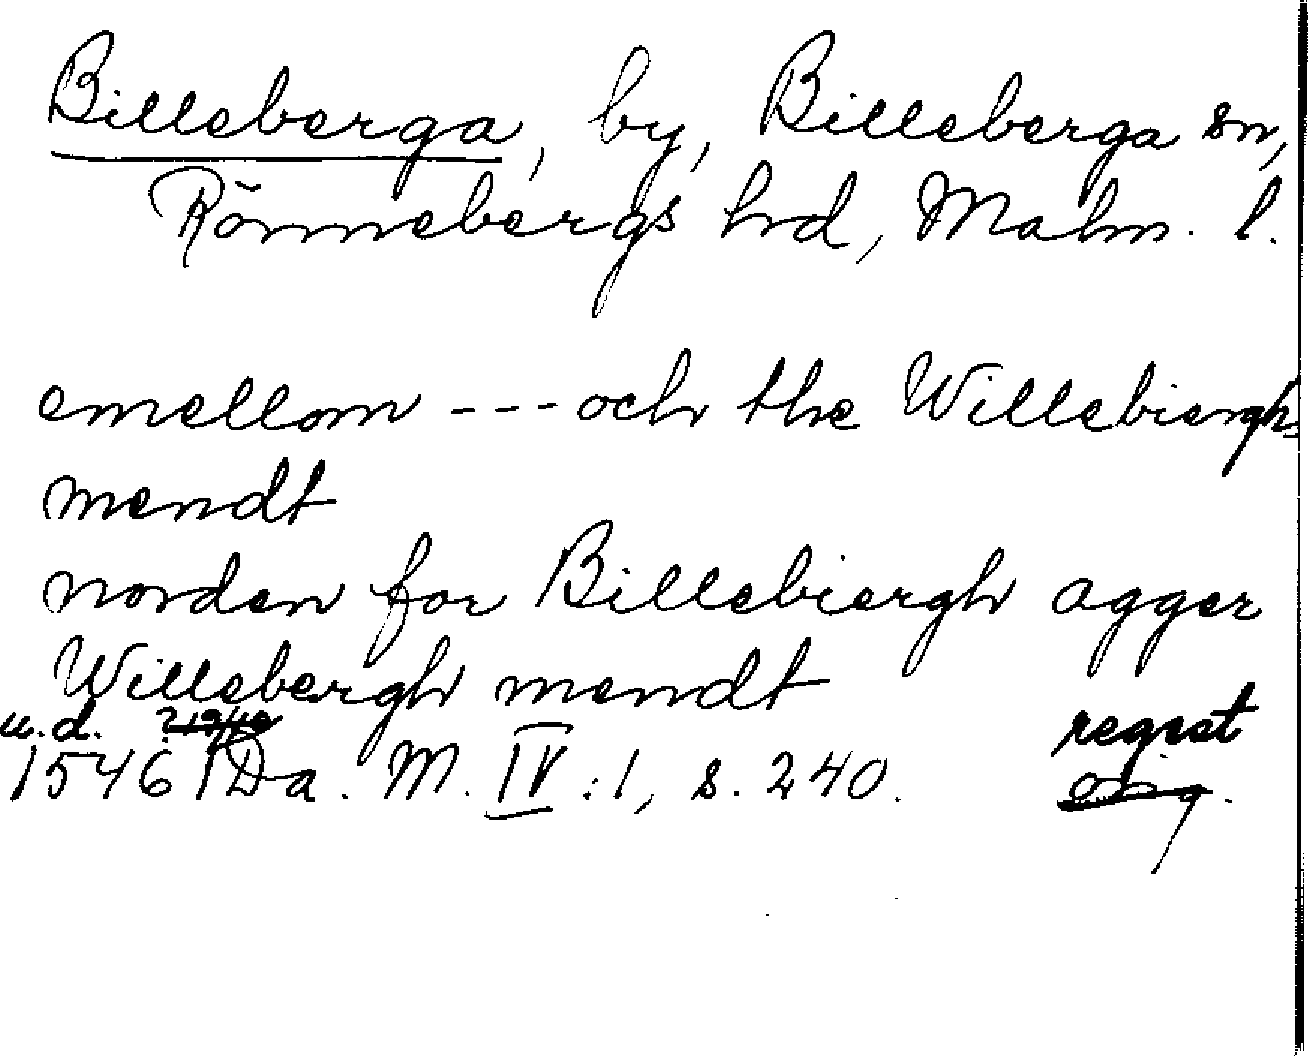 Billeberga, by, Billeberga sn,
Rönnebergs hrd, Malm. l.
emellom --- och the Willebiergh
mendt
norden for Billebiergh agger
Willebergh mendt
u.d. regest
1546 Da. M. IV:1, s. 240. orig.